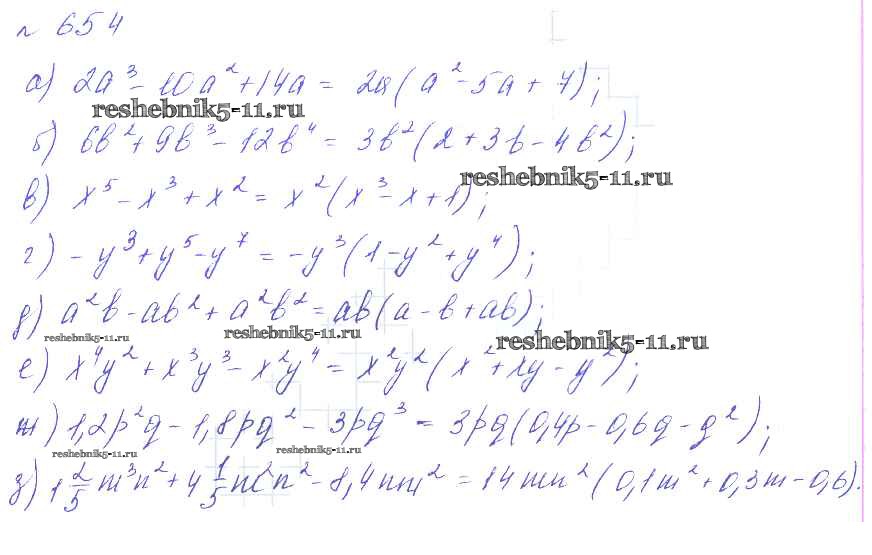 № 654
а) 2a³ - 10a² + 14a = 2a(a² - 5a + 7);
reshebnik5-11.ru
б) 6b² + 9b³ - 12b⁴ = 3b²(2 + 3b - 4b²);
reshebnik5-11.ru
в) x⁵ - x³ + x² = x²(x³ - x + 1);
г) -y³ + y⁵ - y⁷ = -y³(1 - y² + y⁴);
д) a²b - ab² + a²b² = ab(a - b + ab);
reshebnik5-11.ru reshebnik5-11.ru reshebnik5-11.ru
е) x⁴y² + x³y³ - x²y⁴ = x²y²(x² + xy - y²);
ж) 1,2p²q - 1,8pq² - 3pq³ = 3pq(0,4p - 0,6q - q²);
reshebnik5-11.ru reshebnik5-11.ru
з) 1 2/5 m³n² + 4 1/5 m²n² - 8,4nm² = 14mn²(0,1m² + 0,3m - 0,6).